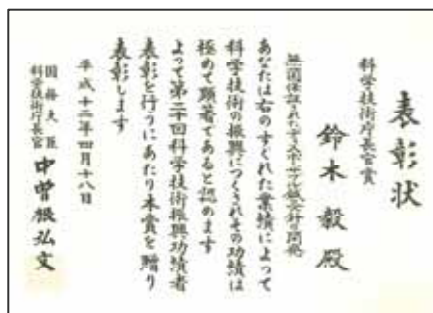 表彰状
科学技術庁長官賞
鈴木毅殿
の開発
あなたは右のすぐれた業績によって
科学技術の振興につくされその功績は
極めて顕著であると認めます
よって第二十回科学技術振興功績者
表彰を行うにあたり本賞を贈り
表彰します
平成十二年四月十八日
国務大臣
科学技術庁長官
中曽根弘文